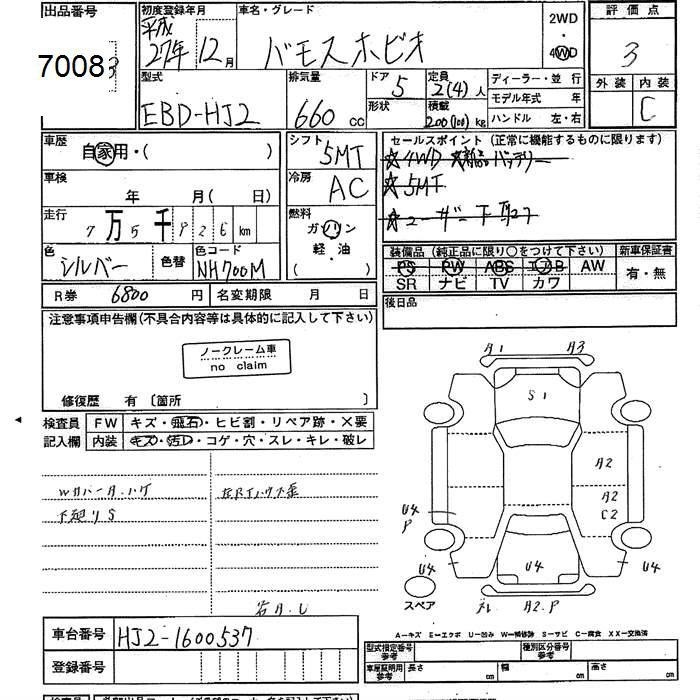 出品番号 初度登録年月 車名・グレード 評価点
7008
平成 27年 12月 バモスホビオ 2WD・4WD 3
型式 排気量 ドア 5 定員 2(4)人 ディーラー・並行 外装 内装
EBD-HJ2 660 cc 形状 積載 200(100)kg モデル年式 年 C
ハンドル 左・右
車歴 自家用・( ) シフト 5MT セールスポイント (正常に機能するものに限ります)
☆4WD ☆新品バッテリー
車検 年 月(日) 冷房 AC ☆5MT
走行 7万5千926km 燃料 ガソリン ☆ユーザー下取り
軽・油
( )
色 シルバー 色替 色コード NH700M
装備品 (純正品に限り○をつけて下さい) 新車保証書
PS PW ABS エアB AW 有・無
SR ナビ TV カワ
R券 6800円 名変期限 月 日 後日品
注意事項申告欄(不具合内容等は具体的に記入して下さい)
ノークレーム車
no claim
修復歴 有 〔箇所 〕
検査員 FW キズ・飛石・ヒビ割・リペア跡・X要
記入欄 内装 キズ・汚レ・コゲ・穴・スレ・キレ・破レ
Wカバーカハゲ
下廻りS
A1 A3
S1
A2
A2
C2
U4
P
U4 U4 U4
スペア A2.P
A-キズ E-エクボ U-凹み W-補修跡 S-サビ C-腐食 XX-交換済
車台番号 HJ2-1600537
登録番号
型式指定番号 参考 種別区分番号 参考
車庫証明用 参考 長さ cm 幅 cm 高さ cm